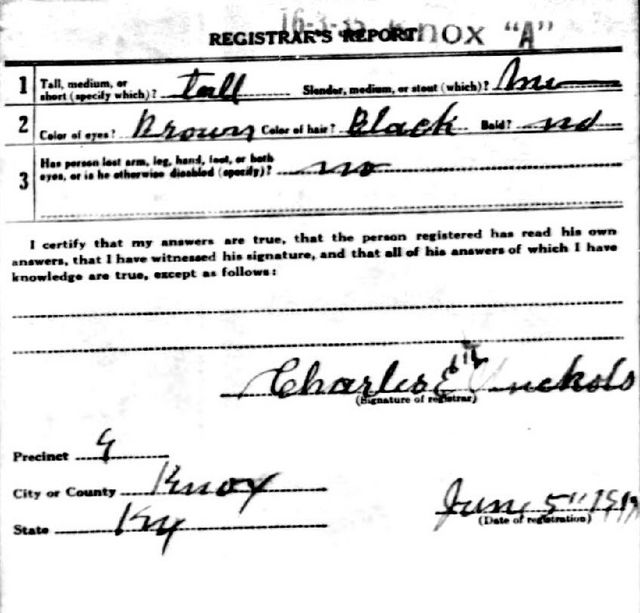 16-3-35 Knox "A"
REGISTRAR'S REPORT
1 Tall, medium, or short (specify which)? tall Slender, medium, or stout (which)?
2 Color of eyes? Brown Color of hair? Black Bald? no
3 Has person lost arm, leg, hand, foot, or both
eyes, or is he otherwise disabled (specify)? no
I certify that my answers are true, that the person registered has read his own
answers, that I have witnessed his signature, and that all of his answers of which I have
knowledge are true, except as follows:
Charles E
(Signature of registrar)
Precinct
City or County Knox
State Ky
June 5" 1917
(Date of registration)